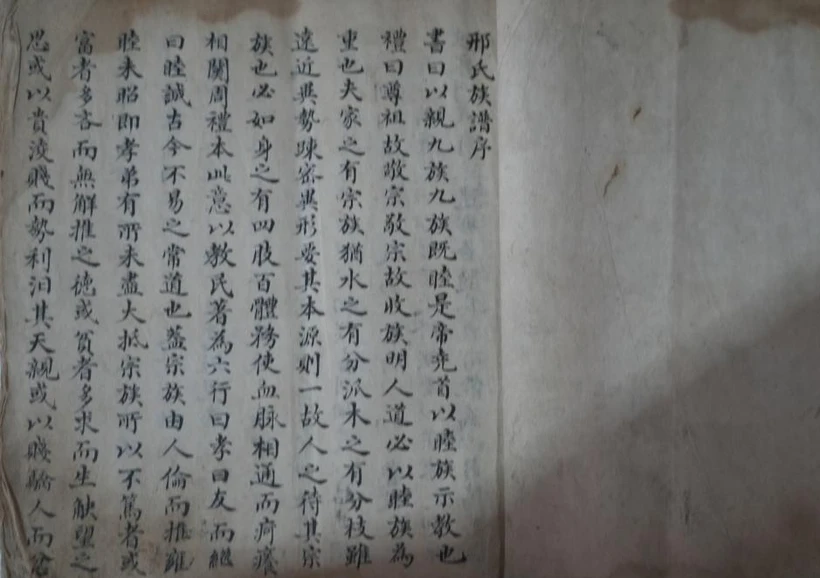 邢氏族譜序
書曰以親九族九族既睦是帝堯首以睦族示教也
禮曰尊祖故敬宗敬宗故收族明人道必以睦族為
重也夫家之有宗族猶水之有分派木之有分枝雖
遠近異勢疎密異形要其本源則一故人之待其宗
族也必如身之有四肢百體務使血脉相通而疴癢
相關周禮本此意以教民著為六行曰孝曰友而繼
曰睦誠古今不易之常道也葢宗族由人倫而推雍
睦未昭即孝弟有所未盡大抵宗族所以不篤者或
富者多吝而無解推之徳或貧者多求而生觖望之
思或以貴淩賤而勢利汨其天親或以賤驕人而忿